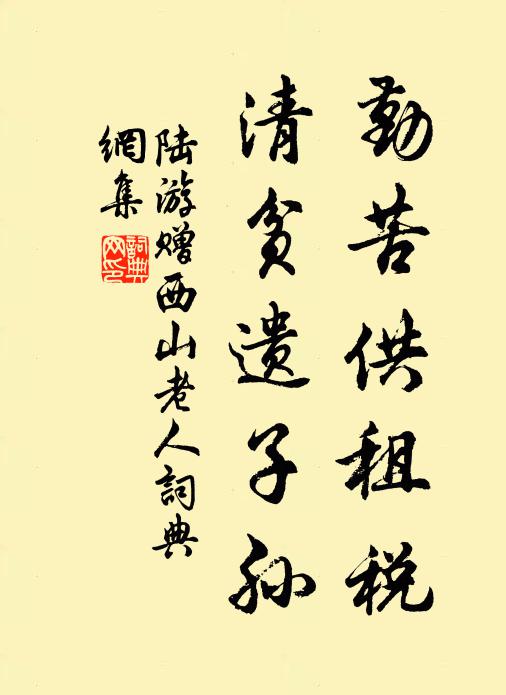 勤苦供租税
清贫遗子孙
陆游赠西山老人詞典
網集
詞典
网印